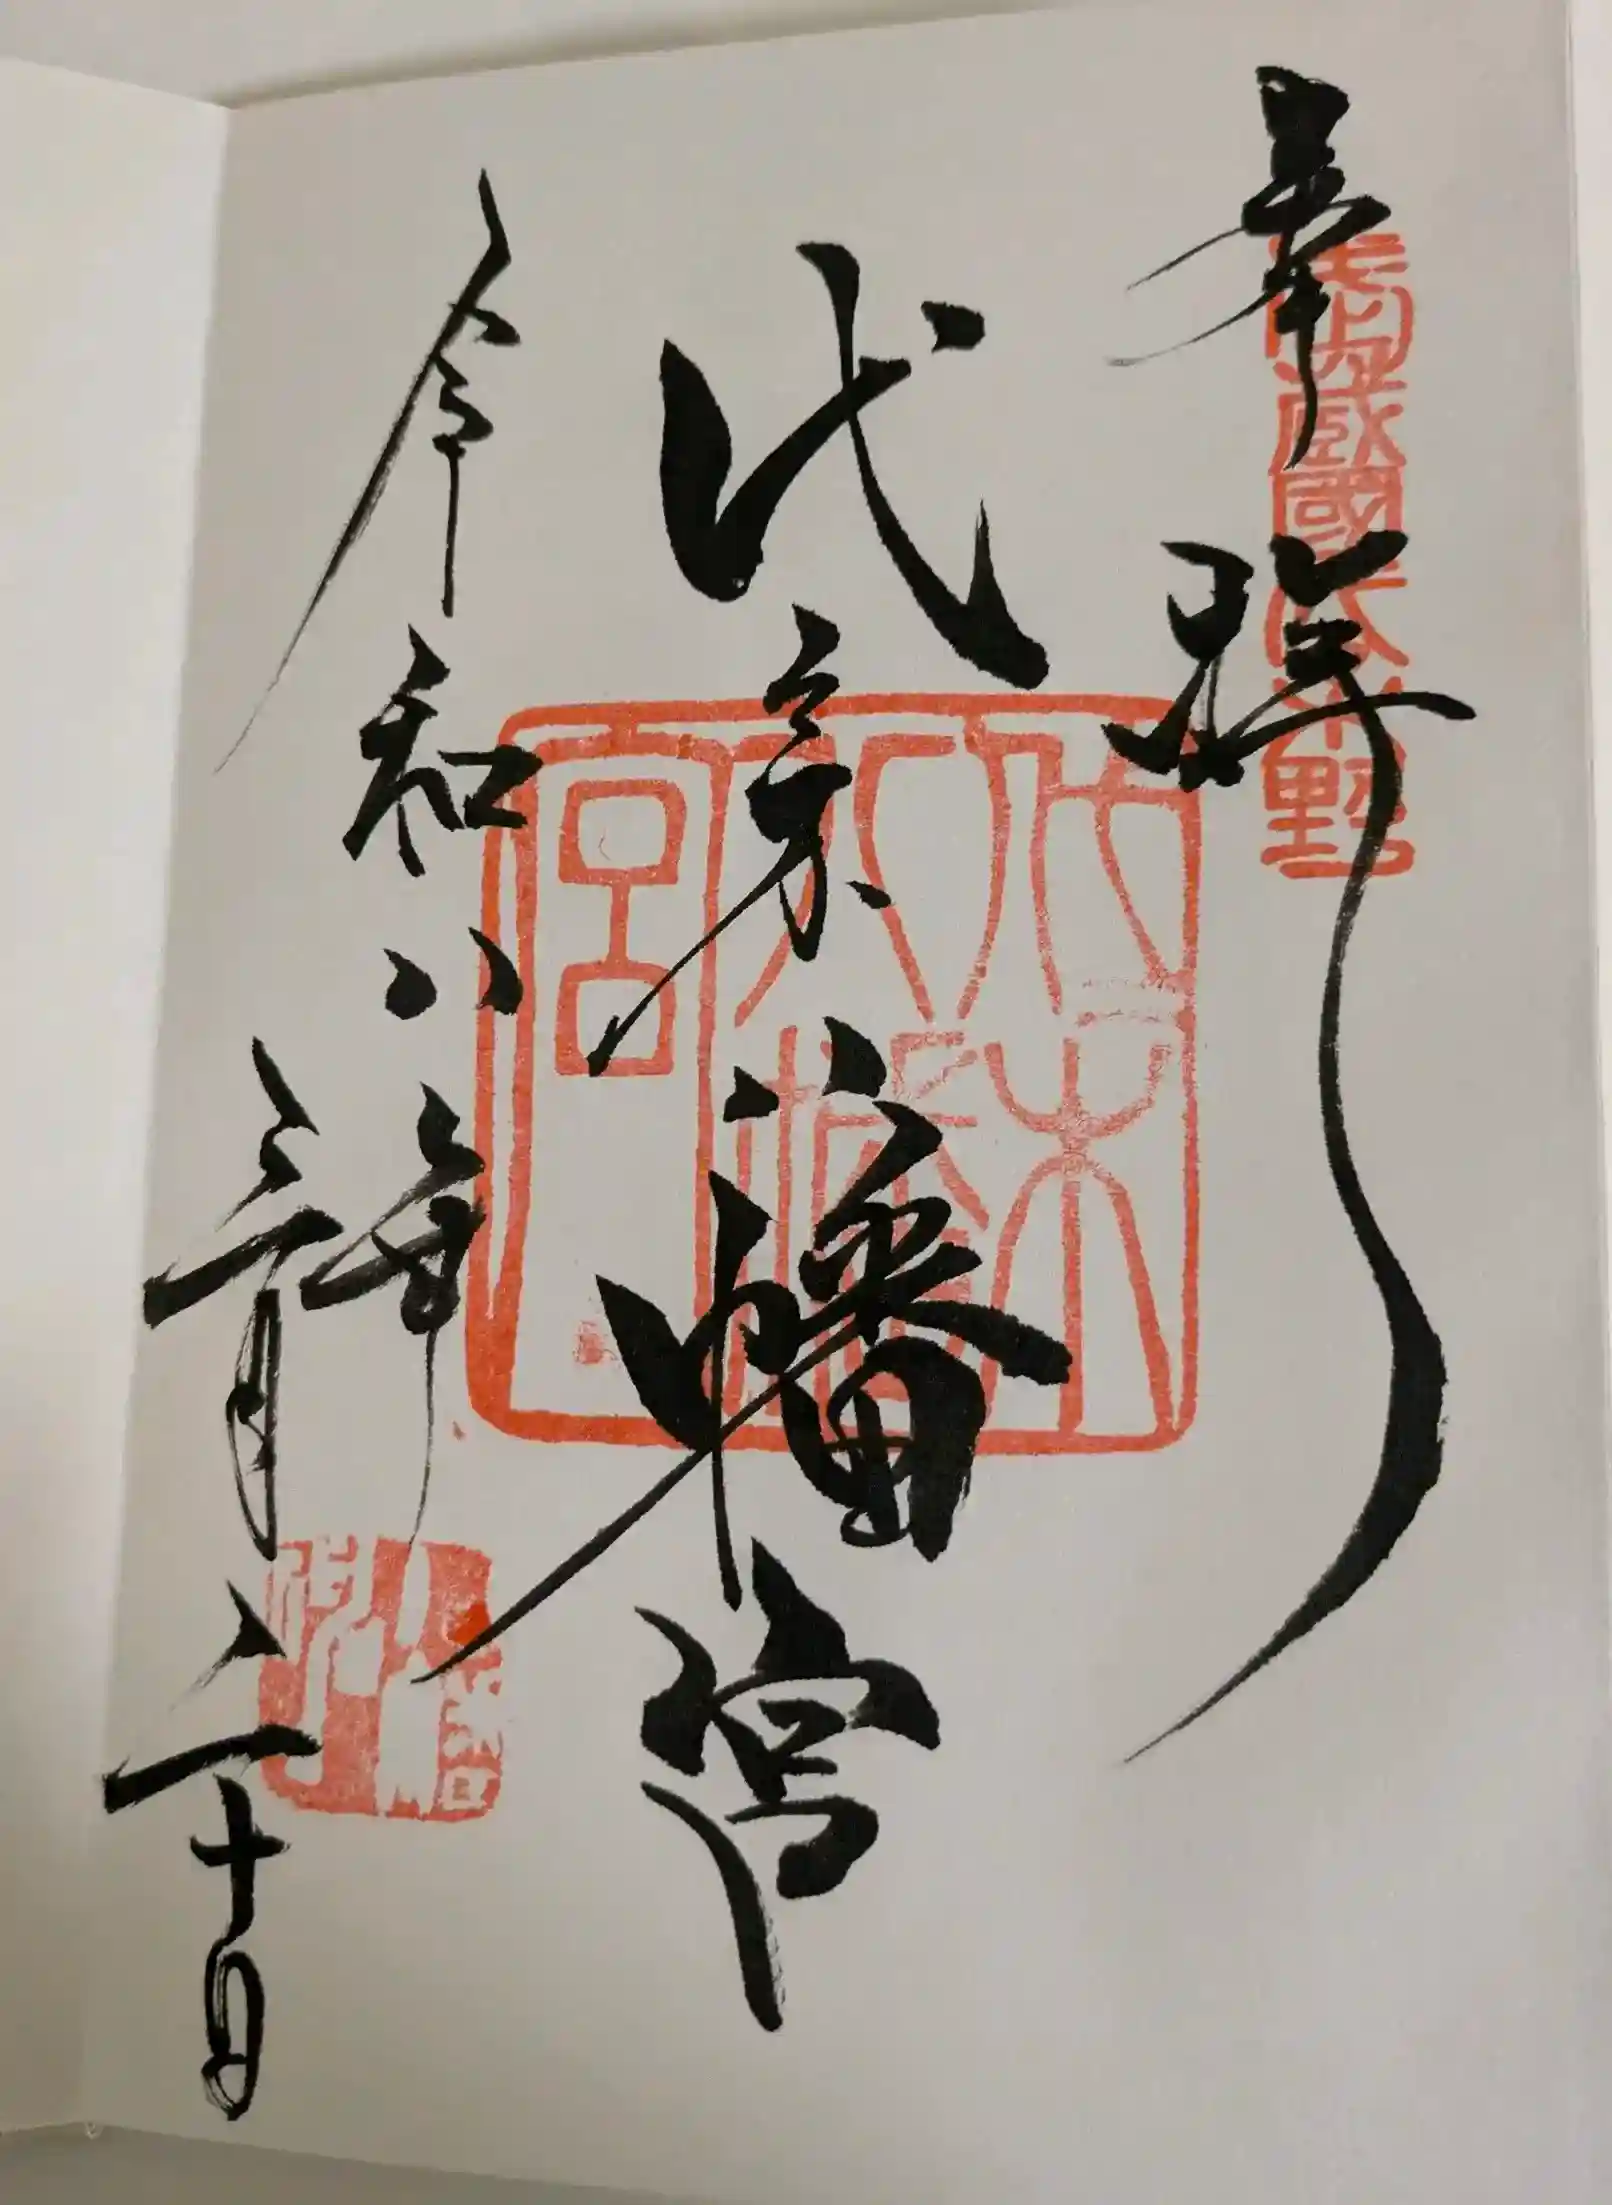 奉拝
武蔵國代々木野
代々木八幡宮
代々木八幡宮
令和八年
三月二十日